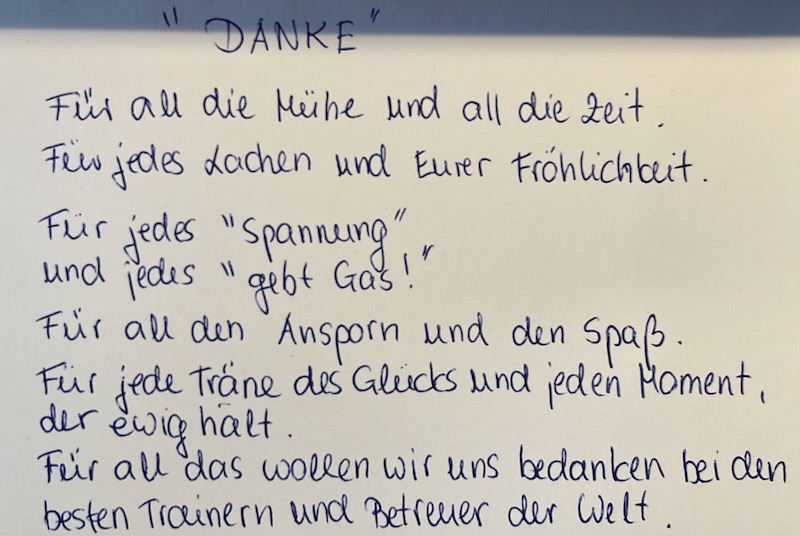 "DANKE"
Für all die Mühe und all die Zeit.
Für jedes Lachen und Eurer Fröhlichkeit.
Für jedes "Spannung"
und jedes "gebt Gas!"
Für all den Ansporn und den Spaß.
Für jede Träne des Glücks und jeden Moment,
der ewig hält.
Für all das wollen wir uns bedanken bei den
besten Trainern und Betreuer der Welt.